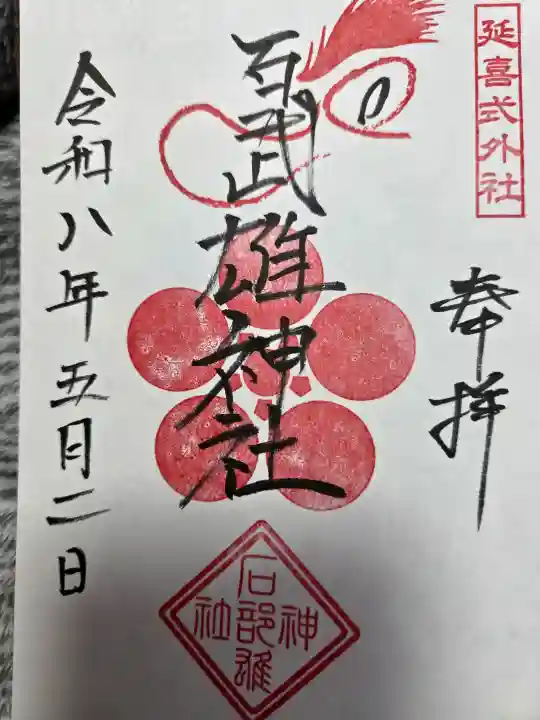 延喜式外社
奉拝
石武雄神社
石部雄神社
令和八年五月二日